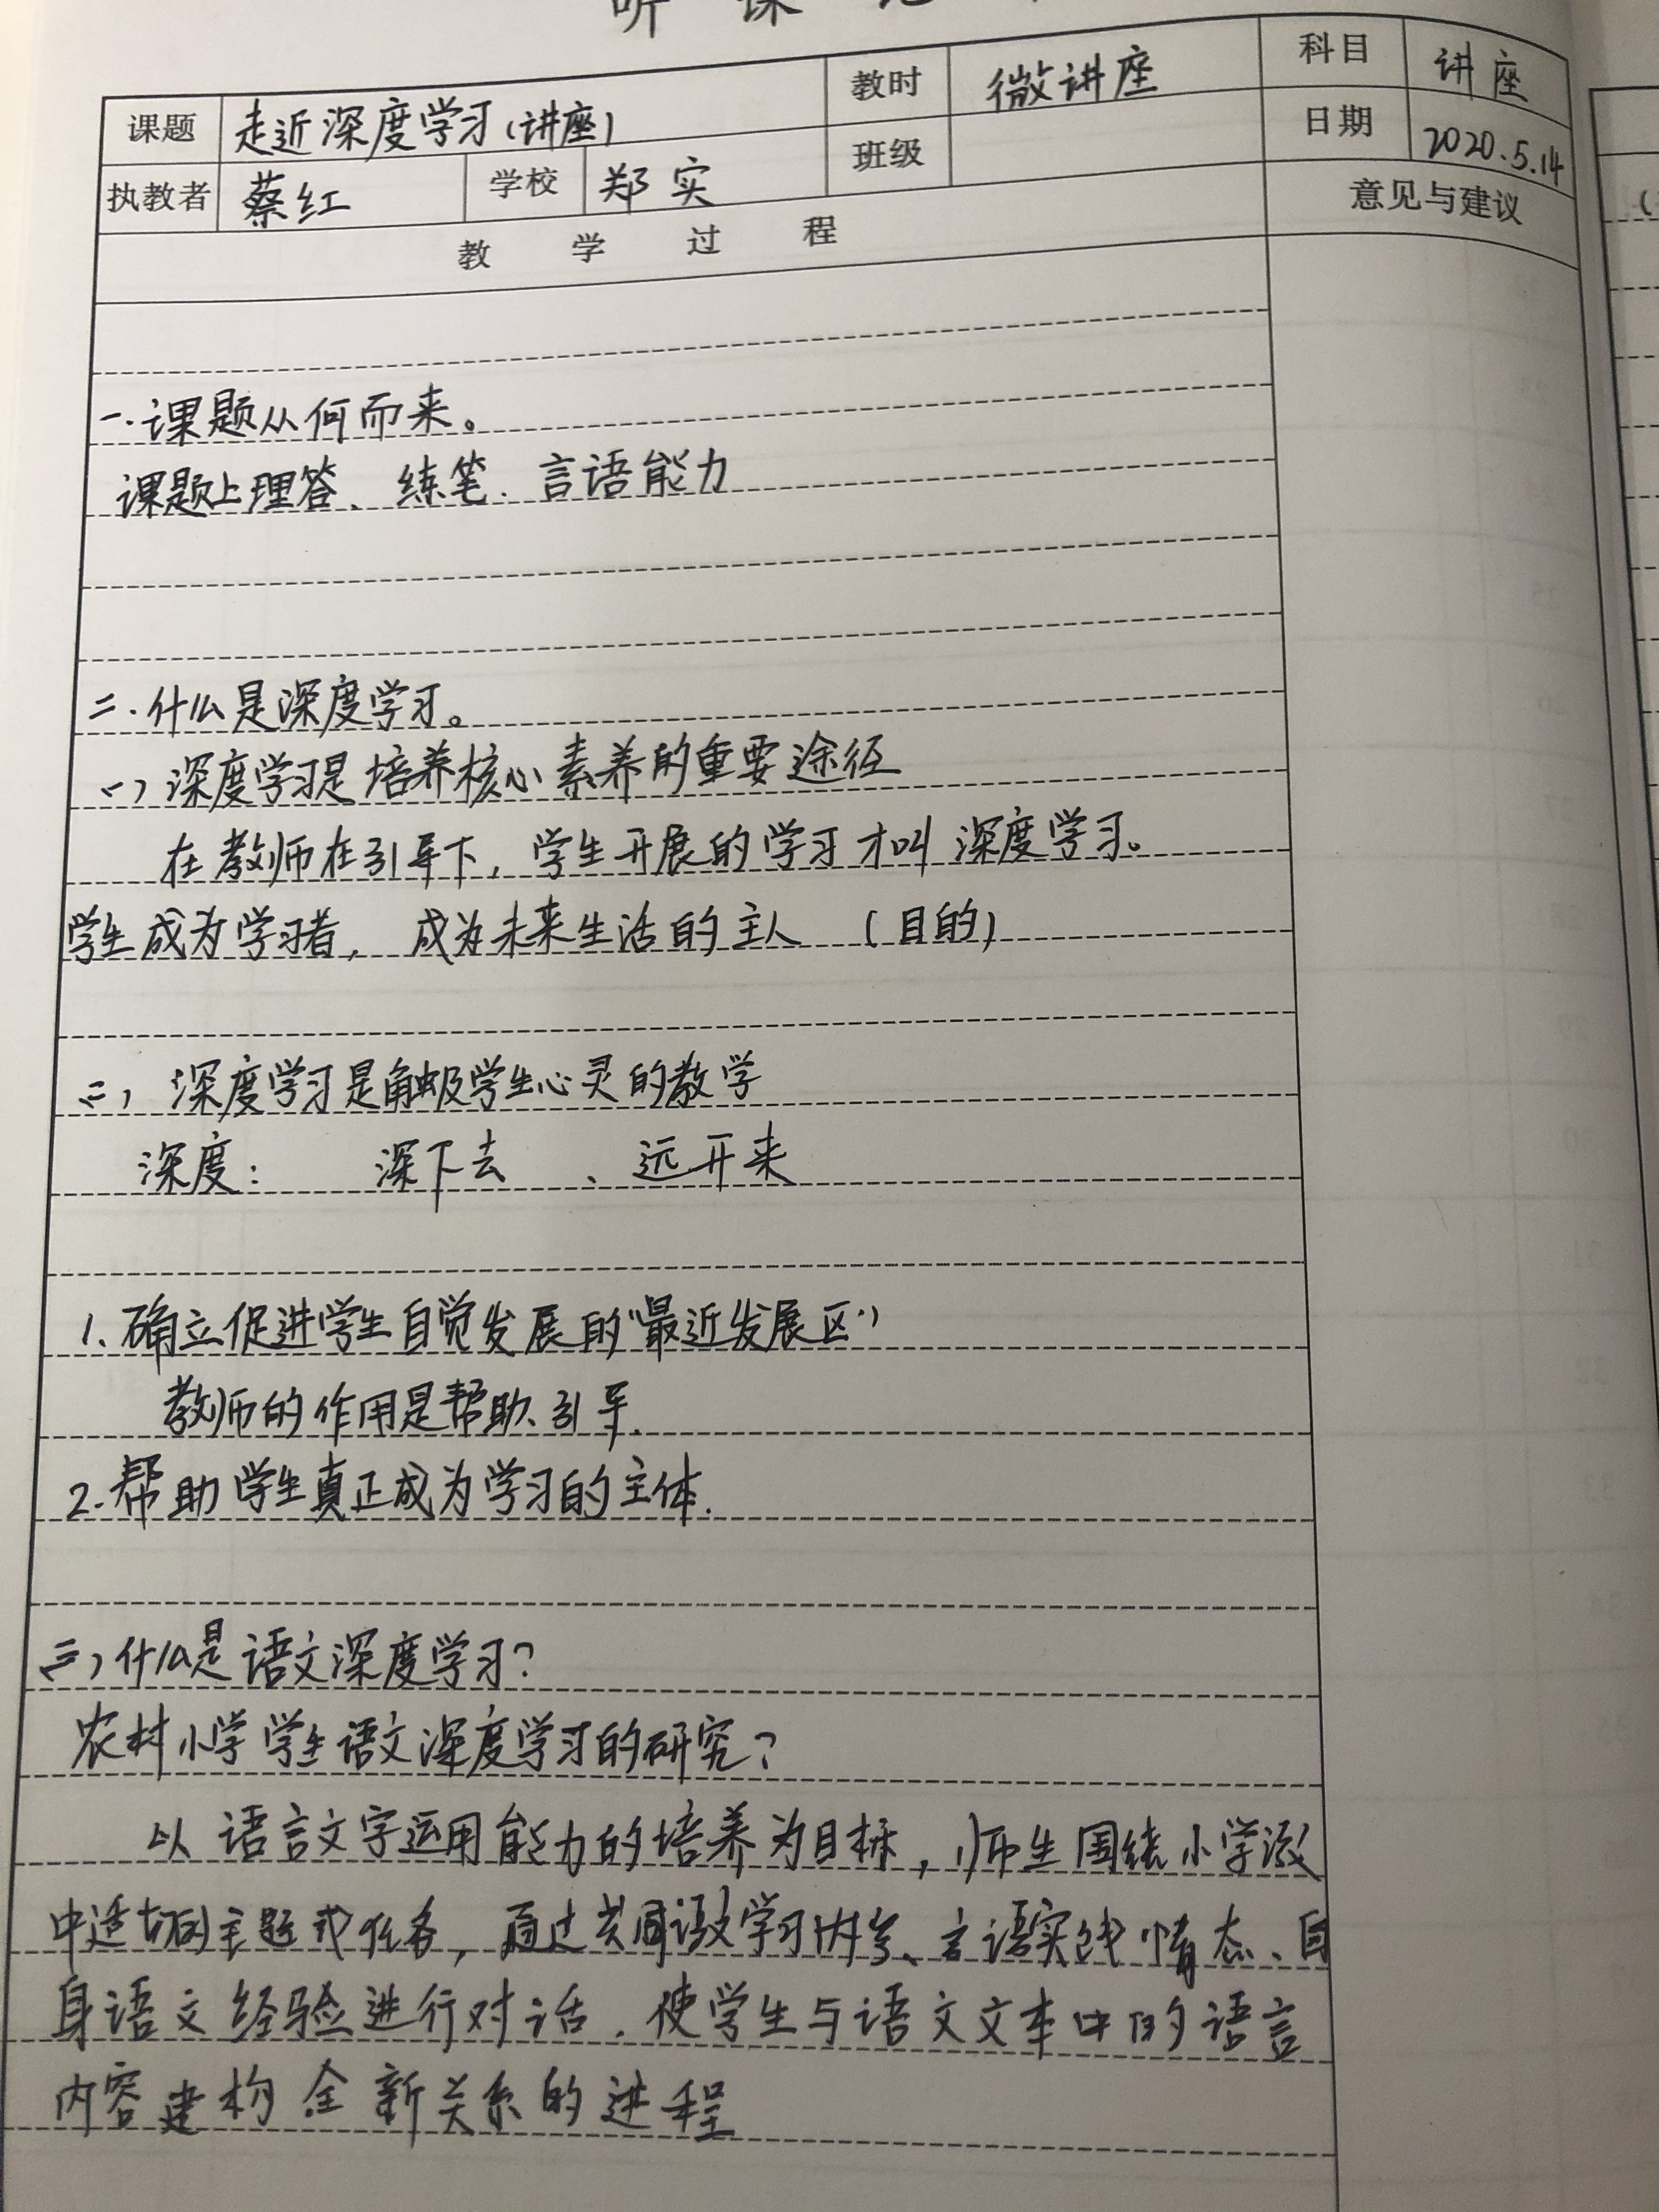 听课记
课题 走近深度学习(讲座) 教时 微讲座 科目 讲座
执教者 蔡红 学校 郑实 班级 日期 2020.5.14
教学过程 意见与建议
一.课题从何而来。
课题上理答、练笔、言语能力
二.什么是深度学习。
(一)深度学习是培养核心素养的重要途径
在教师在引导下,学生开展的学习才叫深度学习。
学生成为学习者,成为未来生活的主人 (目的)
(二)深度学习是触及学生心灵的教学
深度: 深下去 、远开来
1.确立促进学生自觉发展的"最近发展区"
教师的作用是帮助、引导.
2.帮助学生真正成为学习的主体.
(三)什么是语文深度学习?
农村小学学生语文深度学习的研究?
以语言文字运用能力的培养为目标,师生围绕小学
中适切的主题或任务,通过共同学习内容、言语实践情态、自
身语文经验进行对话.使学生与语文文本中的语言
内容建构全新关系的进程